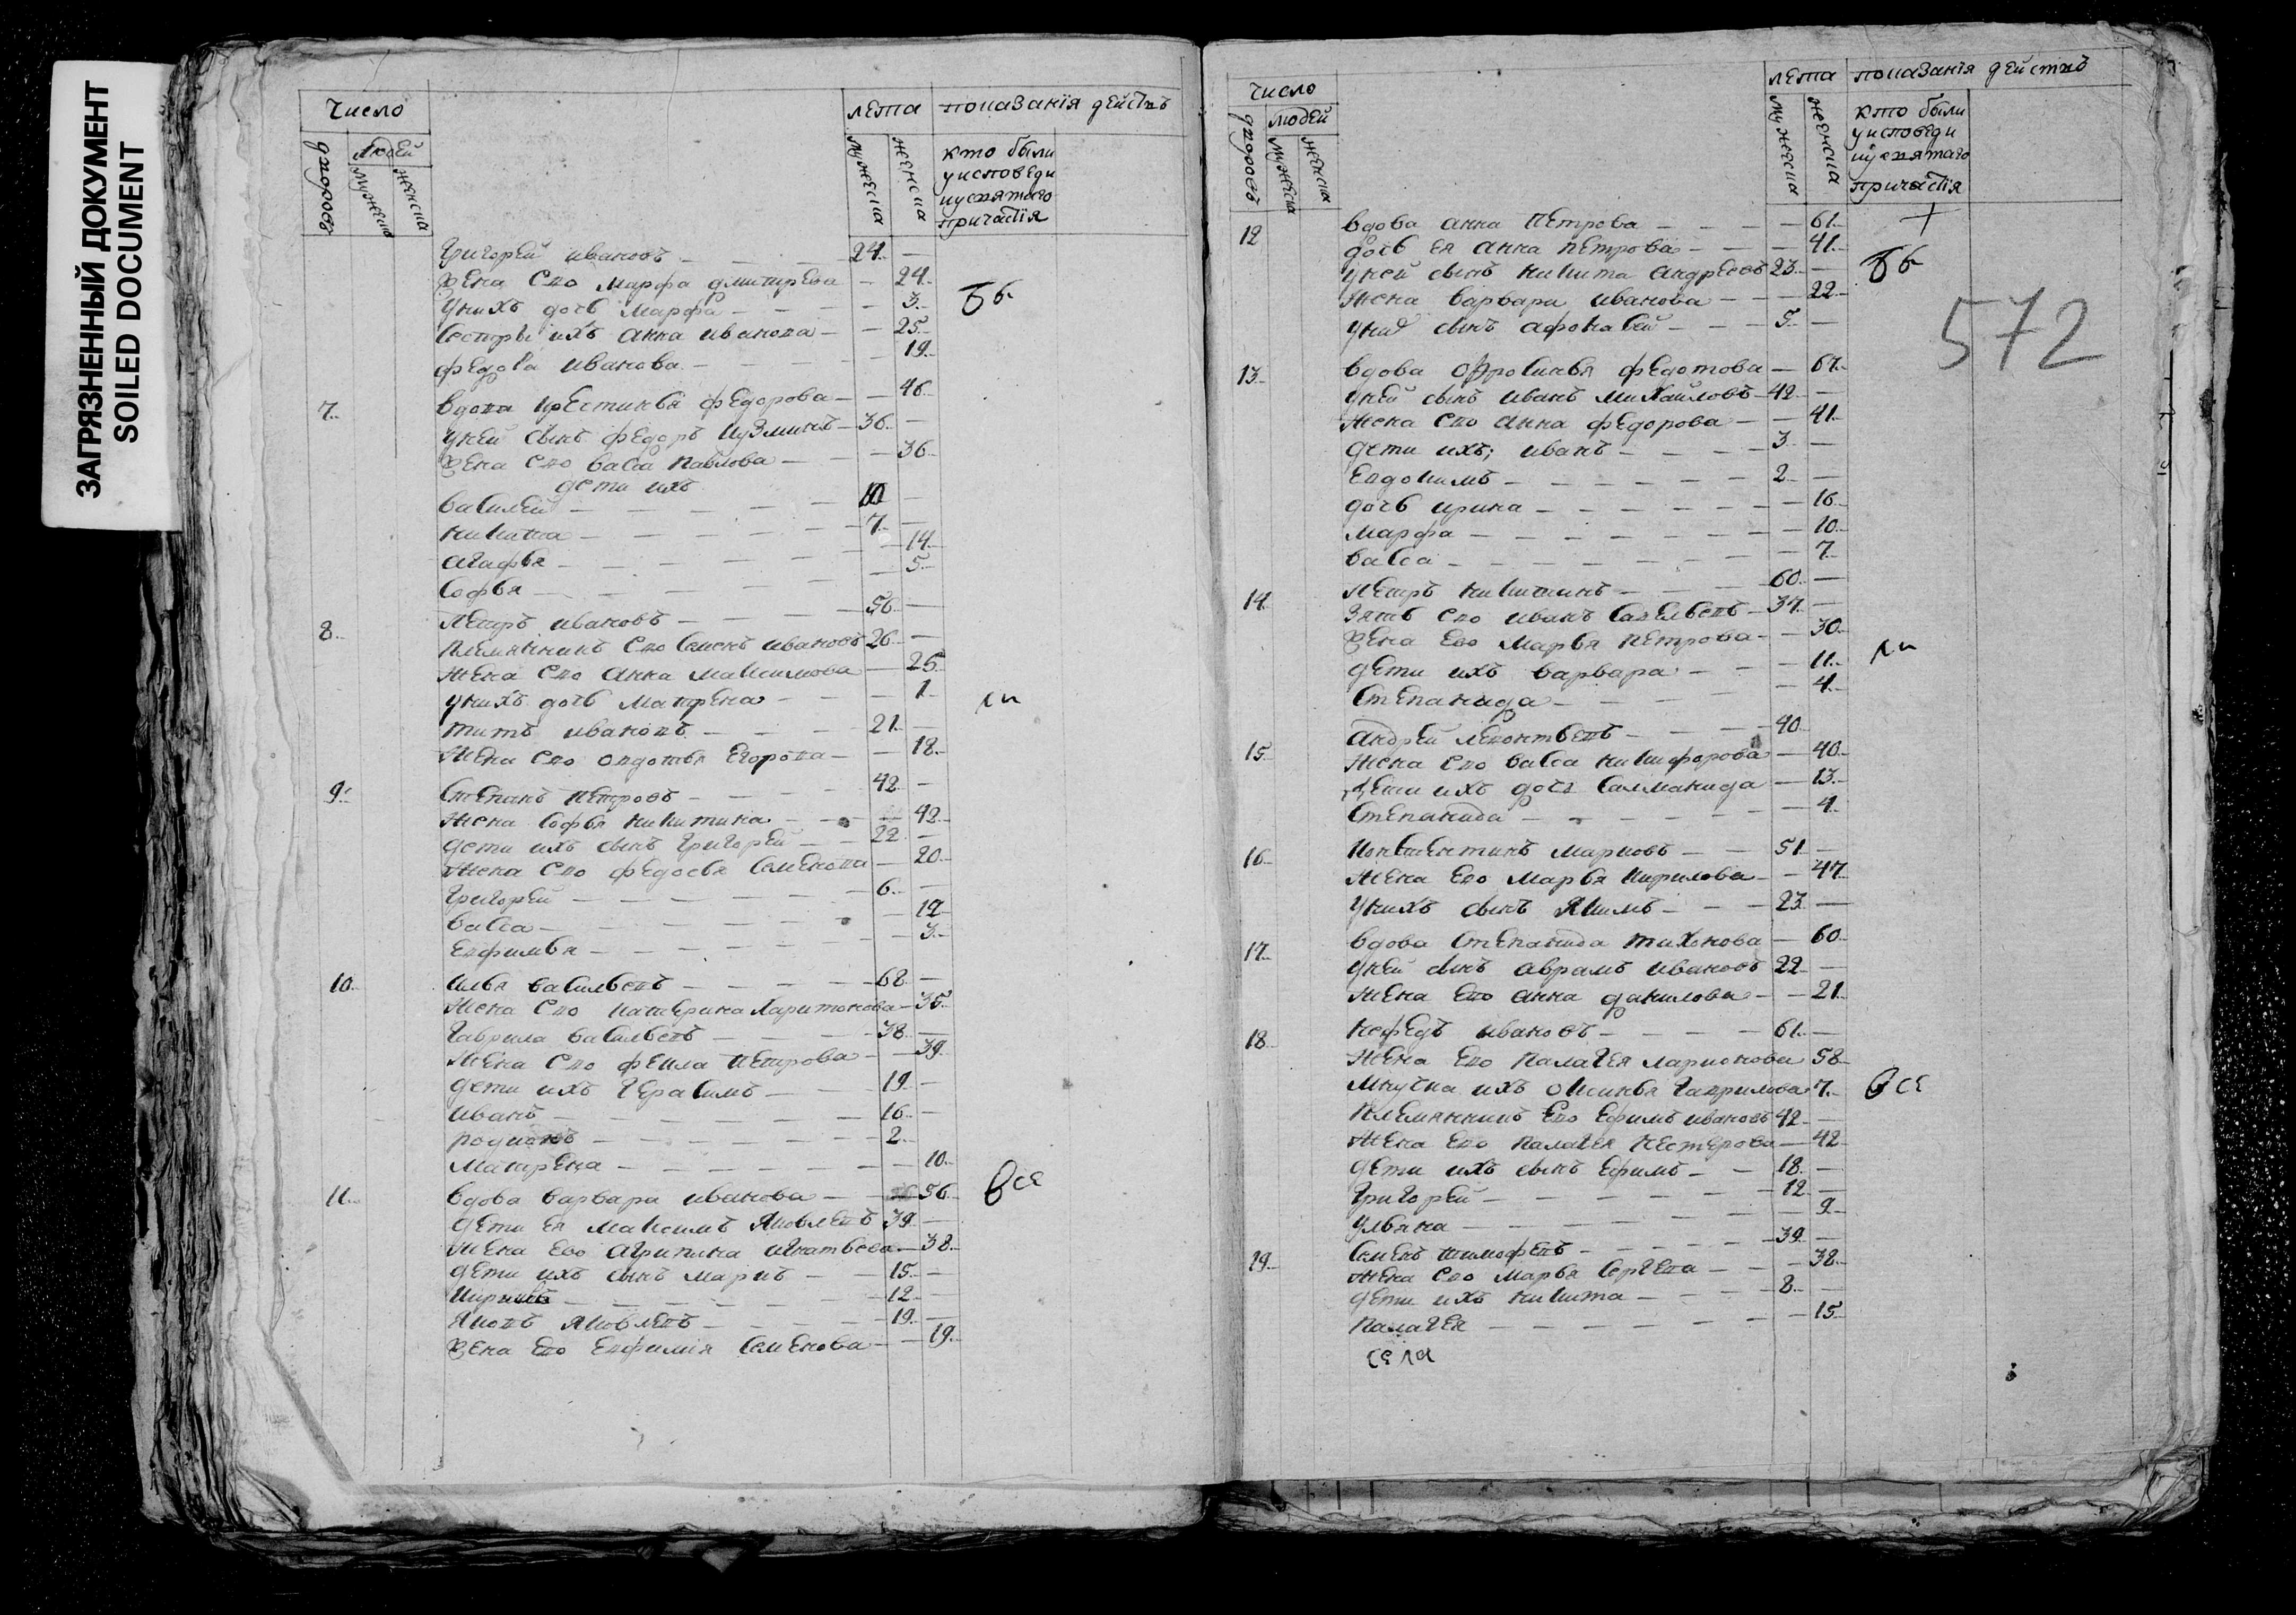 ЗАГРЯЗНЕННЫЙ ДОКУМЕНТ
SOILED DOCUMENT
число
лета показанія действъ
дворовъ
людей
мужеска
женска
мужеска
женска
кто были
у исповеди
и у святаго
причастія
Григорей Ивановъ 24.
Жена ево Марфа Дмитрева 24.
у нихъ дочь Марфа 3. бб
Сестры ихъ Анна Иванова 25.
Федора Иванова 19.
7. вдова Крестинья Федорова 46.
у ней сынъ Федоръ Кузминъ 36.
Жена ево Васа Павлова 36.
дети ихъ
Василей 10
Никита 7.
Агафья 14.
Софья 5.
8. Петръ Ивановъ 56.
племянникъ ево Семенъ Ивановъ 26.
Жена ево Анна Максимова 25.
у нихъ дочь Матрена 1.
Титъ Ивановъ 21.
Жена ево Овдотья Егорова 18.
9. Степанъ Петровъ 42.
Жена Софья Никитина 42.
дети ихъ сынъ Григорей 22.
Жена ево Федосья Семенова 20.
Григорей 6.
Васса 12
Евфимья 3.
10. Илья Васильевъ 68.
Жена ево Катерина Харитонова 35.
Гаврила Васильевъ 38.
Жена ево Фекла Петрова 39.
дети ихъ Герасимъ 19.
Иванъ 16.
Родионъ 2.
Матрена 10.
11. вдова Варвара Иванова 56. все
дети ея Максимъ Яковлевъ 39.
Жена ево Агрипина Игнатьева 38.
дети ихъ сынъ Маркъ 15.
12.
Яковъ Яковлевъ 19.
Жена ево Евфимия Семенова 19.
число
лета показанія действъ
дворовъ
людей
мужеска
женска
мужеска
женска
кто были
у исповеди
и у святаго
причастія
572
12 вдова Анна Петрова 61.
дочь ея Анна Петрова 41.
у ней сынъ Никита Андреевъ 23. бб
Жена Варвара Иванова 22.
сынъ Афонасей 5.
13. вдова Офросинья Федотова 67.
у ней сынъ Иванъ Михайловъ 42.
Жена ево Анна Федорова 41.
дети ихъ; Иванъ 3.
Евдокимъ 2.
дочь Ирина 16.
Марфа 10.
Васса 7.
14. Петръ Никитинъ 60.
Зять ево Иванъ Савельевъ 37.
Жена ево Марья Петрова 30.
дети ихъ Варвара 11.
Степанида 4.
15 Андрей Левонтьевъ 40.
Жена ево Васса Никифорова 40.
дети ихъ дочь Саламанида 13.
Степанида 4.
16. Констентинъ Марковъ 51.
Жена ево Марья Кирилова 47.
у нихъ сынъ Якимъ 23.
17. вдова Степанида Тихонова 60.
у ней сынъ Аврамъ Ивановъ 22.
Жена ево Анна Данилова 21.
18. Нефедъ Ивановъ 61.
Жена ево Палагея Ларионова 58.
внучка ихъ Оксинья Гаврилова 7. все
племянникъ ево Ефимъ Ивановъ 42.
Жена ево Палагея Нестерова 42
дети ихъ сынъ Ефимъ 18.
Григорей 12.
Ульяна 9.
19. Семенъ Тимофеевъ 39.
Жена ево Марья Сергеева 38.
дети ихъ Никита 8.
Палагея 15.
села